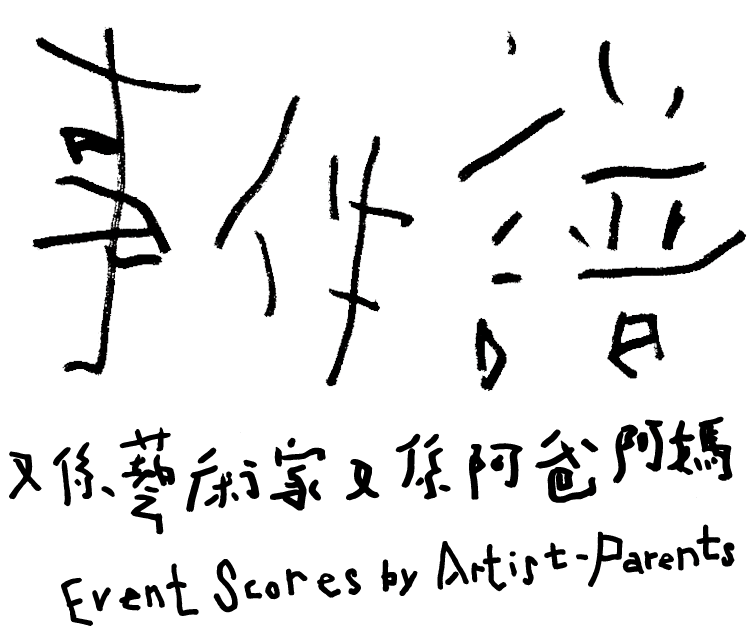 事件譜
又係藝術家又係阿爸阿媽
Event Scores by Artist-Parents